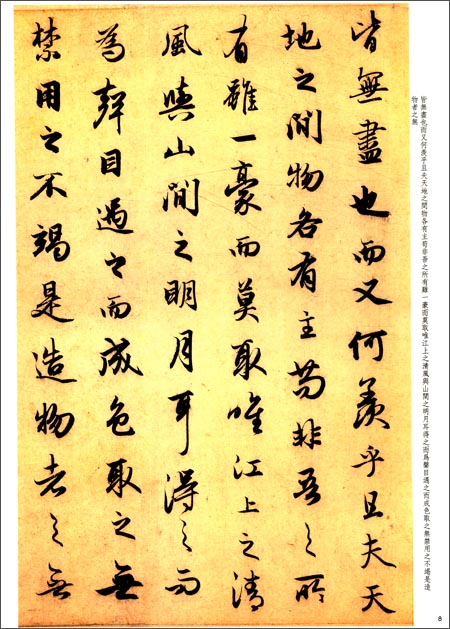 皆無盡也而又何羨乎且夫天地之間物各有主苟非吾之所有雖一豪而莫取唯江上之清風與山間之明月耳得之而爲聲目遇之而成色取之無禁用之不竭是造
物者之無
皆無盡也而又何羨乎且夫天
地之間物各有主苟非吾之所
有雖一豪而莫取唯江上之清
風與山間之明月耳得之而
為聲目遇之而成色取之無
禁用之不竭是造物者之無
8